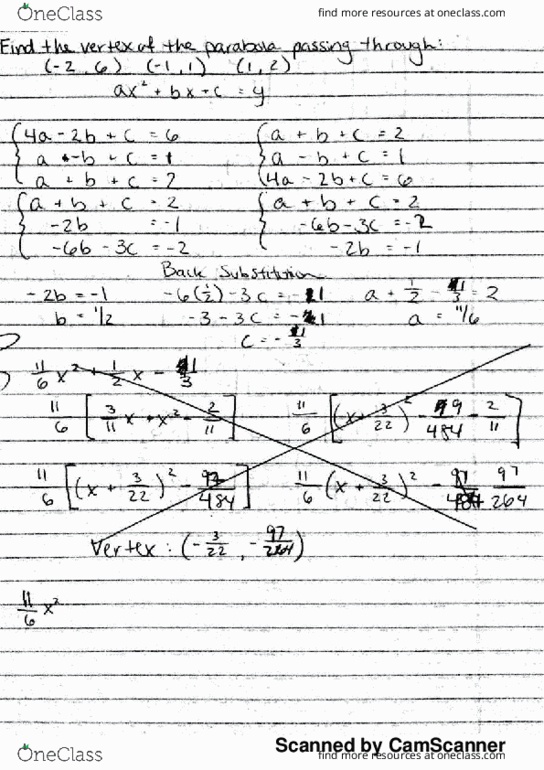 OneClass
find more resources at oneclass.com
Find the vertex of the parabola passing through:
(-2, 6) (-1, 1) (1, 2)
ax² + bx + c = y
4a - 2b + c = 6
a - b + c = 1
a + b + c = 2
a + b + c = 2
a - b + c = 1
4a - 2b + c = 6
a + b + c = 2
-2b = -1
-6b - 3c = -2
a + b + c = 2
-6b - 3c = -2
-2b = -1
Back Substitution
-2b = -1 -6(1/2) - 3c = 1 a + 1/2 - 1/3 = 2
b = 1/2 -3 - 3c = 1 a = 11/6
c = - 1/3
11/6 x² + 1/2 x - 1/3
11/6 [3/11 x + x² - 2/11] 11/6 [(x + 3/22)² - 9/484 - 2/11]
11/6 [(x + 3/22)² - 97/484] 11/6 (x + 3/22)² - 97/264
Vertex: (-3/22, -97/264)
11/6 x²
Scanned by CamScanner
OneClass
find more resources at oneclass.com